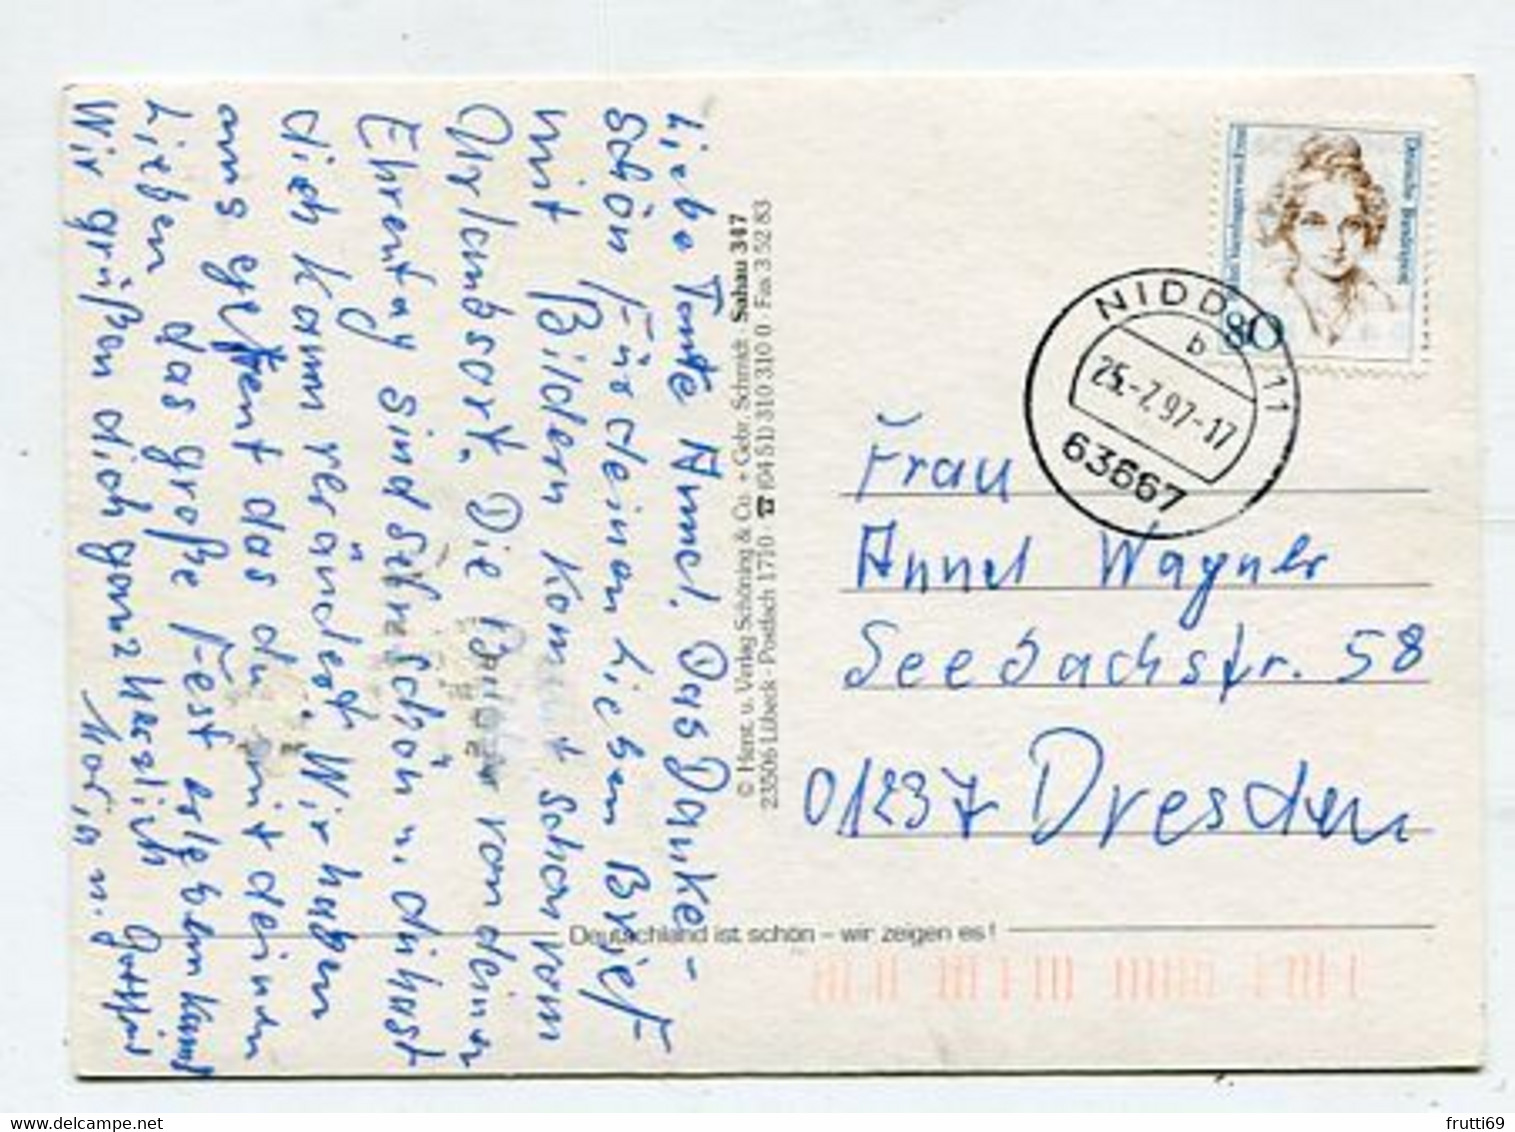 Liebe Tante Annel. Das Danke-
schön für deinen lieben Brief
mit Bildern kommt schon vom
Urlaubsort. Die Bilder von deinem
Ehrentag sind sehr schön u. du hast
dich kaum verändert. Wir haben
uns gefreut das du mit deinen
Lieben das große Fest erleben kannst
Wir grüßen dich ganz herzlich
u. Gottfried
© Herst. u. Verlag Schöning & Co. + Gebr. Schmidt · Sahau 347
23506 Lübeck · Postfach 1710 · ☎ (04 51) 310 310 0 Fax 3 52 83
Deutsche Bundespost
80
NIDDA 11
b
25.-7.97-17
63667
Frau
Annel Wagner
Seebachstr. 58
01237 Dresden
Deutschland ist schön – wir zeigen es!
frutti69